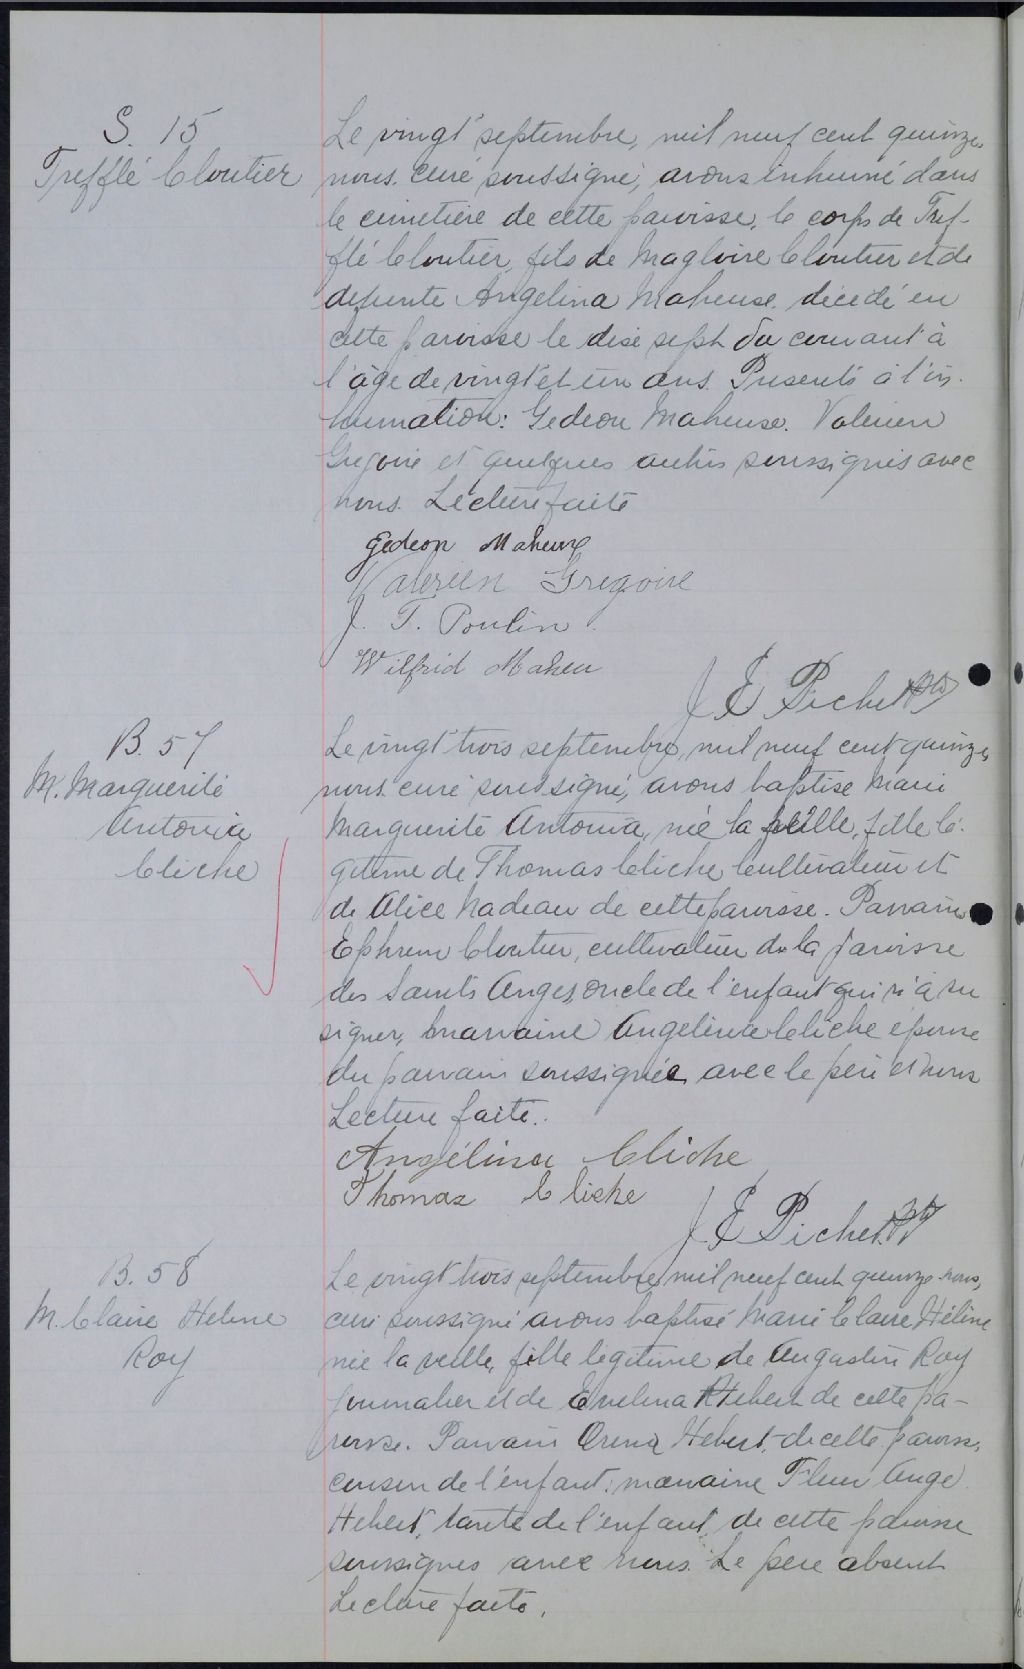 S. 15
Trefflé Cloutier
Le vingt septembre, mil neuf cent quinze,
nous curé soussigné, avons inhumé dans
le cimetière de cette paroisse, le corps de Tref-
flé Cloutier, fils de Magloire Cloutier et de
defunte Angelina Maheuse, décedé en
cette paroisse le dise sept du courant à
l'âge de vingt et un ans. Presents à l'in-
humation: Gedeon Maheuse. Valerien
Gregoire et quelques autres soussignés avec
nous. Lecture faite
Gédeon Maheux
Valerien Gregoire
J. T. Poulin.
Wilfrid Maheu
J E Pichet Ptr
B. 57
M. Marguerite
Antonia
Cliche
Le vingt trois septembre, mil neuf cent quinze,
nous curé soussigné, avons baptisé Marie
Marguerite Antonia, née la veille, fille lé-
gitime de Thomas Cliche Cultivateur et
de Alice Nadeau de cette paroisse. Parrain
Ephrem Cloutier, cultivateur de la paroisse
des Saints Anges, oncle de l'enfant qui n'a su
signer, marraine Angelina Cliche épouse
du parrain soussignée avec le père et nous
Lecture faite.
Angélina Cliche
Thomas Cliche
J E Pichet Ptr
B. 58
M. Claire Helene
Roy
Le vingt trois septembre mil neuf cent quinze nous,
curé soussigné avons baptisé Marie Claire Hélène
née la veille, fille legitime de Augustin Roy
journalier et de Evelina Hebert de cette pa-
roisse. Parrain Hebert, de cette paroisse,
cousin de l'enfant: marraine Fleur Ange
Hebert, tante de l'enfant, de cette paroisse
soussignes avec nous. Le père absent
Lecture faite.